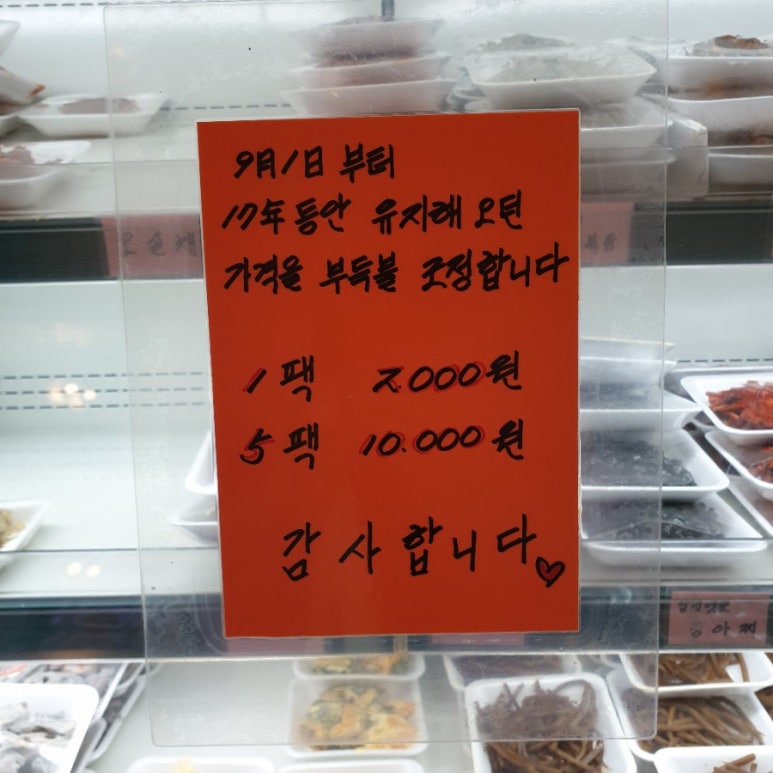 9月1日 부터
17年동안 유지해 오던
가격을 부득불 조정합니다
1팩 2.000원
5팩 10.000원
감사합니다♡